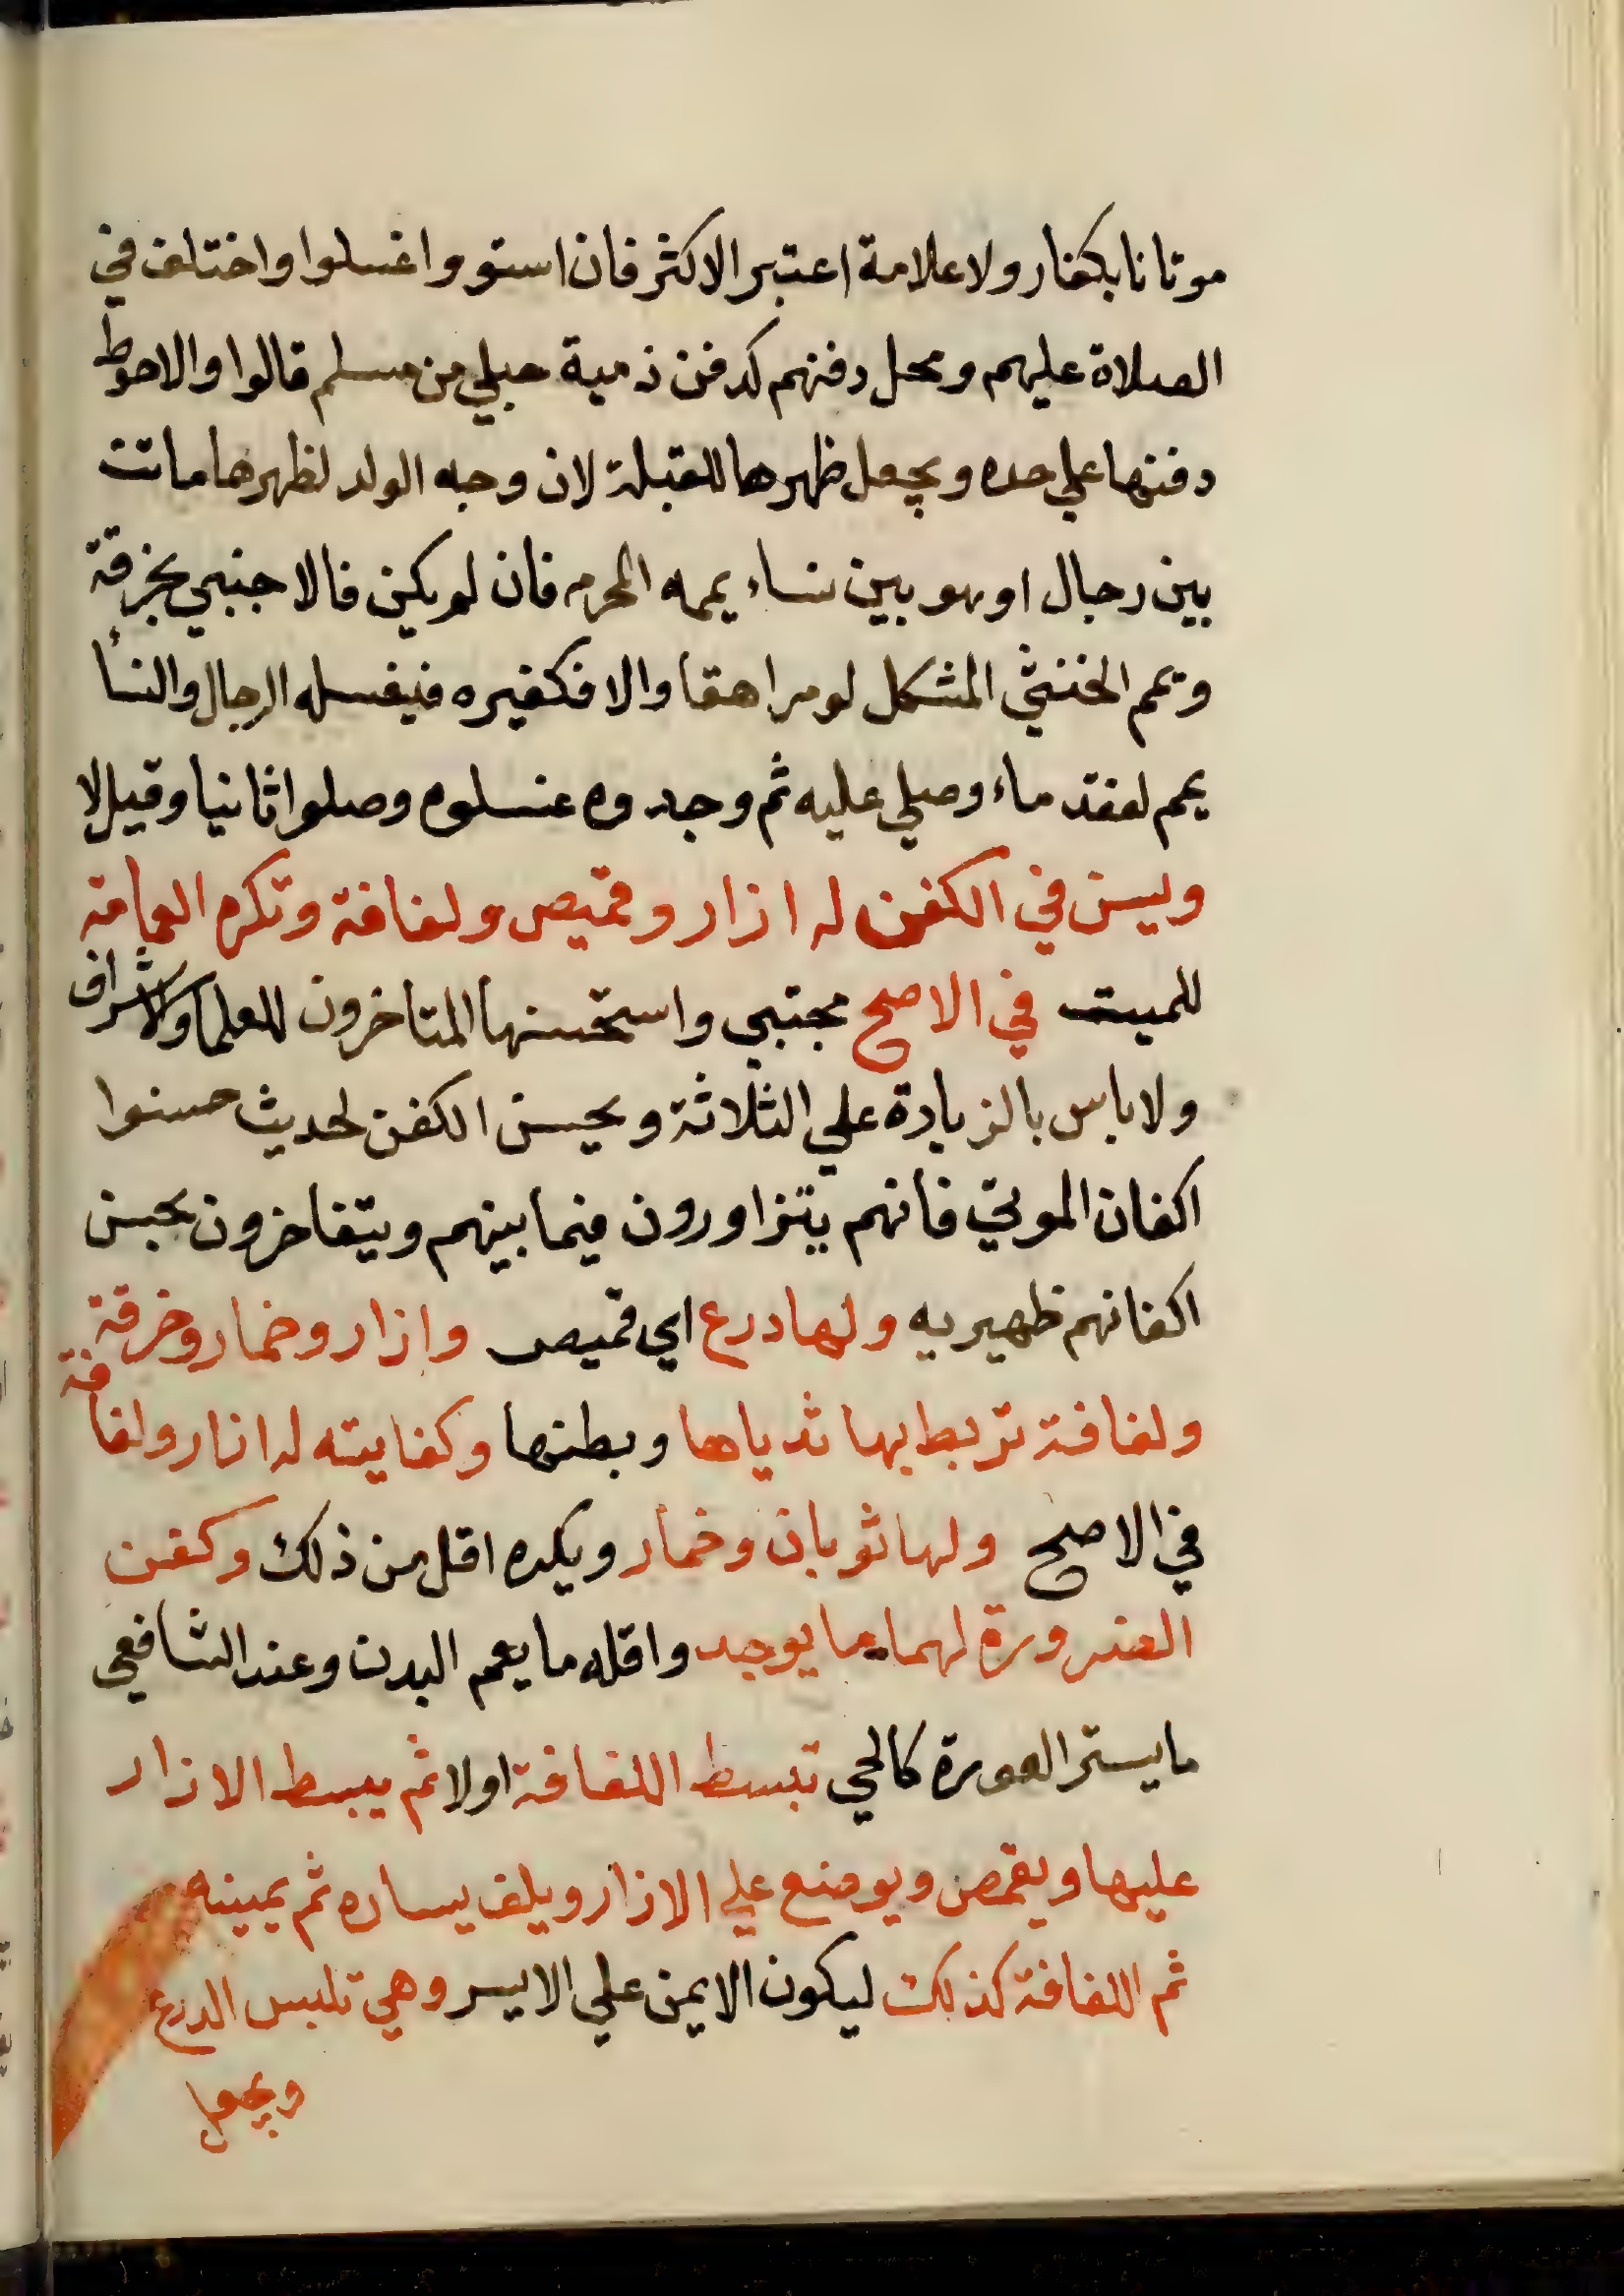 موتانا بكفار ولا علامة اعتبر الاكثر فان استووا غسلوا واختلف في
الصلاة عليهم ومحل دفنهم كدفن ذمية حبلي من مسلم قالوا والاحوط
دفنها علي حده ويجعل ظهرها للقبلة لان وجه الولد لظهرها ماتت
بين رجال او هو بين نساء يممه المحرم فان لم يكن فالاجنبي بخرقة
ويمم الخنثي المشكل لو مراهقا والا فكغيره فيغسله الرجال والنسأ
يمم لفقد ماء وصلي عليه ثم وجدوه غسلوه وصلوا ثانيا وقيل لا
ويسن في الكفن له ازار وقميص ولفافة وتكره العمامة
للميت في الاصح مجتبي واستحسنها المتاخرون للعلما والاشراف
ولا باس بالزيادة علي الثلاثة ويحسن الكفن لحديث حسنوا
اكفان الموتي فانهم يتزاورون فيما بينهم ويتفاخرون بحسن
اكفانهم ظهيريه ولها درع اي قميص وازار وخمار وخرقة
ولفافة تربط بها ثدياها وبطنها وكفايته له ازار ولفافة
في الاصح ولها ثوبان وخمار ويكره اقل من ذلك وكفن
الضرورة لهما ما يوجد واقله ما يعم البدن وعند الشافعي
ما يستر العورة كالحي تبسط اللفافة اولا ثم يبسط الازار
عليها ويقمص ويوضع علي الازار ويلف يساره ثم يمينه
ثم اللفافة كذلك ليكون الايمن علي الايسر وهي تلبس الدرع
ويجعل